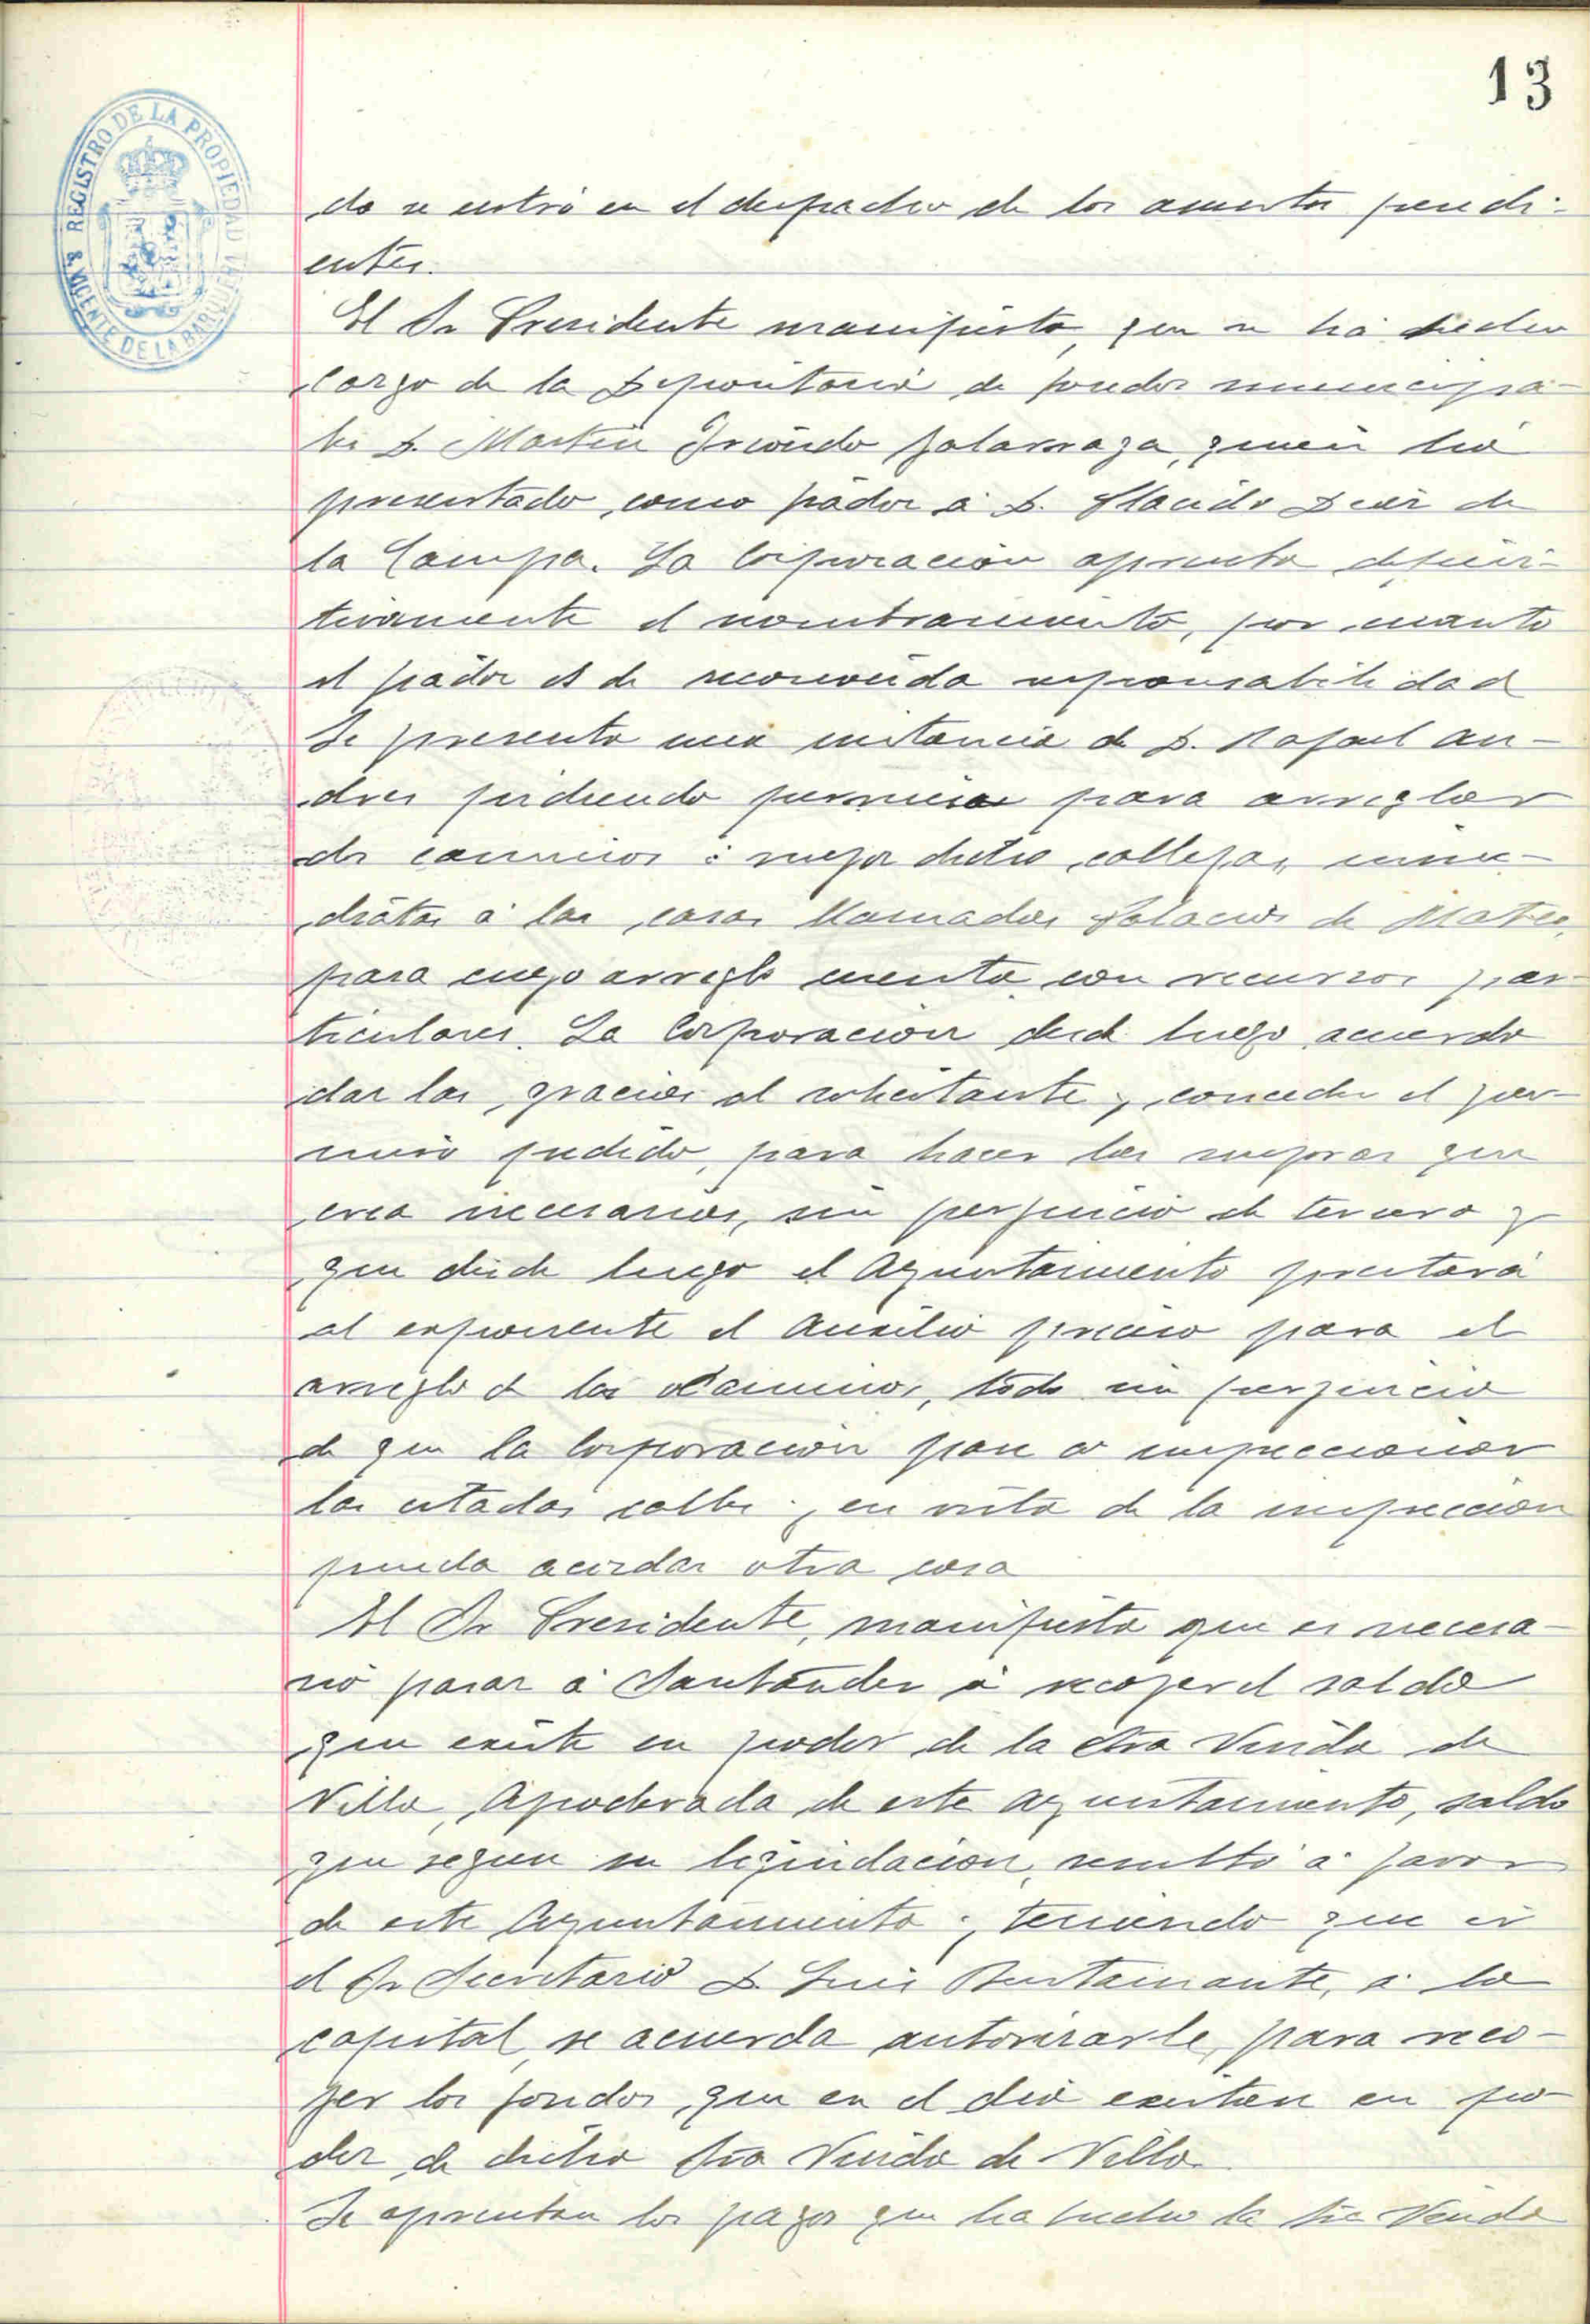 13
REGISTRO DE LA PROPIEDAD
S. VICENTE DE LA BARQUERA
do se entró en el despacho de los asuntos pendi-
entes.
El Sr Presidente manifiesta, que se há hecho
cargo de la Depositaria de fondos municipa-
les D. Martin Iriondo Galarraga, quien há
presentado como fiador á D. Placido Diaz de
la Campa. La Corporación aprueba defini-
tivamente el nombramiento, por cuanto
el fiador es de reconocida responsabilidad
Se presenta una instancia de D. Rafael An-
dres pidiendo permiso para arreglar
dos caminos ó mejor dicho callejas, inme-
diatas á las casas llamadas Palacios de Mateo,
para cuyo arreglo cuenta con recursos par-
ticulares. La Corporacion desde luego acuerda
dar las gracias al solicitante y conceder el per-
miso pedido, para hacer las mejoras que
crea necesarias, sin perjuicio de tercero y
que desde luego el Ayuntamiento prestará
al exponente el auxilio preciso para el
arreglo de los caminos, todo sin perjuicio
de que la Corporacion pase a inspeccionar
las citadas calles y en vista de la inspeccion
pueda acordar otra cosa
El Sr Presidente, manifiesta que es necesa-
rio pasar á Santander á recoger el saldo
que existe en poder de la Sra Viuda de
Villa, Apoderada de este ayuntamiento, saldo
que segun su liquidacion, resultó á favor
de este Ayuntamiento y teniendo que ir
el Sr Secretario D. Luis Bustamante, á la
capital, se acuerda autorizarle, para reco-
jer los fondos, que en el dia existen en po-
der de dicha Sra Viuda de Villa.
Se aprueban los pagos que ha hecho la Sra Viuda